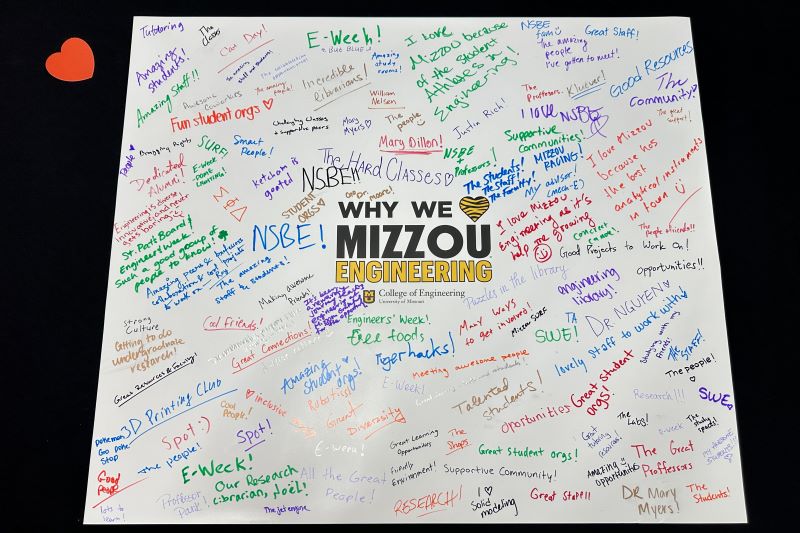 Tutoring
The
class
Car Day!
E-Week!
BUT BLUE
I love
MIZZOU because
of the Student
Athletes in
Engineering!
NSBE
fam
the amazing
people
I've gotten to meet!
Great Staff!
Good Resources
Amazing
students!
Amazing
study
rooms!
Amazing Staff!!
Awesome
coworkers
Incredible
librarians!
William
Nelson
The
Professors.
Kluever!
The
Community!
The great
support!
Fun student orgs
Mary
Myers
The
people
Justin Rich!
I love NSBE
People
Bragging Rights
SURF!
Smart
People!
Mary Dillon!
NSBE
+
Professors!
Supportive
Communities!
MIZZOU
RACING!
I love Mizzou
because has
the best
analytical instruments
in town
Dedicated
Alumni
E-Week
Ketcham is
goated
NSBE!!
The Hard Classes
The Students!
The Staff!
The Faculty!
My advisor!
(mech-E)
STUDENT
ORGS
Dr.
Moore!
Engineering is diverse,
innovative and never
gets boring!
St. Pat's Board!
Engineers' Week!
Such a good group of
people to know!
NSBE!
WHY WE
MIZZOU
ENGINEERING
College of Engineering
University of Missouri
I love Mizzou
Engineering as it's
help me growing
concrete
canoe!
The people friends!!
Good Projects to Work On!
Amazing Peers & balanced
collaboration & cool projects
to work on
The amazing
Staff & Students!
Making awesome
friends!
Puzzles in the library
engineering
library!
Opportunities!!
Strong
Culture
Cool friends!
Great Connections!
Engineers' Week!
Free foods
Many Ways
to get involved!
Mizzou SURF
SWE!
TA
DR NGUYEN
Getting to do
undergraduate
research!
Great Resources & Faculty!
Tigerhacks!
meeting awesome people
lovely staff to work with
studying with my
friends
The STAFF!
The people!
Amazing
Student orgs!
E-Week!
Talented
students!
Great student
orgs!
Research!!!
SWE
3D Printing Club
inclusive
Robotics!
Cool
People!
Diversity
oportunities
The Labs!
E-week
The study
spaces!
Spot :)
Spot!
Go Poke
Stop
The people!
Great Learning
Opportunities
The
Shops.
Great Student orgs!
Great
tutoring
sessions!
The Great
Professors
Good
People
E-Week!
Our Research
Librarian, Noël!
All the Great
People!
Friendly
Environment!
Supportive Community!
Amazing
Opportunities
lots to
learn!
Professor
Park!
The jet engine
RESEARCH!
I ♡
Solid
modeling
Great Staff!!
DR Mary
Myers!
The
Students!